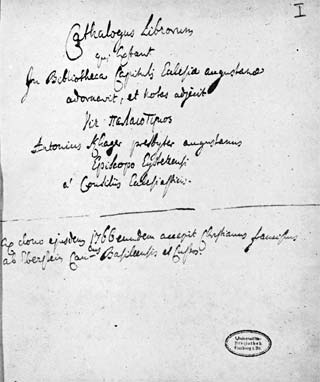 I
Cathalogus Librorum
qui Extant
In Bibliotheca Capituli Ecclesiæ augustanæ
adornavit, et notes adjecit
Vir παλαιοτιμος
Antonius Khager presbyter augustanus
Episcopo Eystettensi
à Consiliis Ecclesiasticis.
dono ejusdem 1766 eundem accepit Christianus franciscus
ab Eberstein Can:cus Basileensis et Custos.
Universitäts-
Bibliothek
Freiburg i. Br.